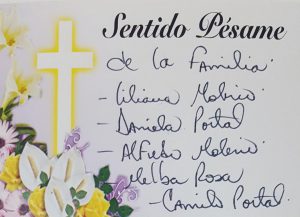 Sentido Pésame
de la Familia.
- Liliana Molino
- Daniela Portal
- Alfredo Moleno
Melba Rosa
- Camilo Portal.